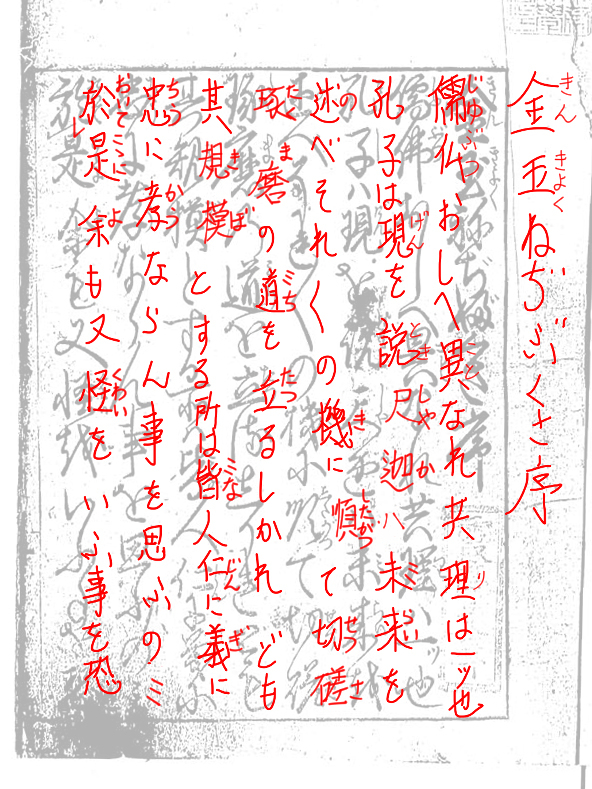 金玉ねぢぶくさ序
儒仏おしへ異なれ共理は一ッ也
孔子は現を説尺迦ハ未来を
述べそれ〱の機に順て切磋
琢磨の道を立るしかれども
其規模とする所は皆人仁に義に
忠に孝ならん事を思ふのミ
於レ是余も又怪をいふ事を恐